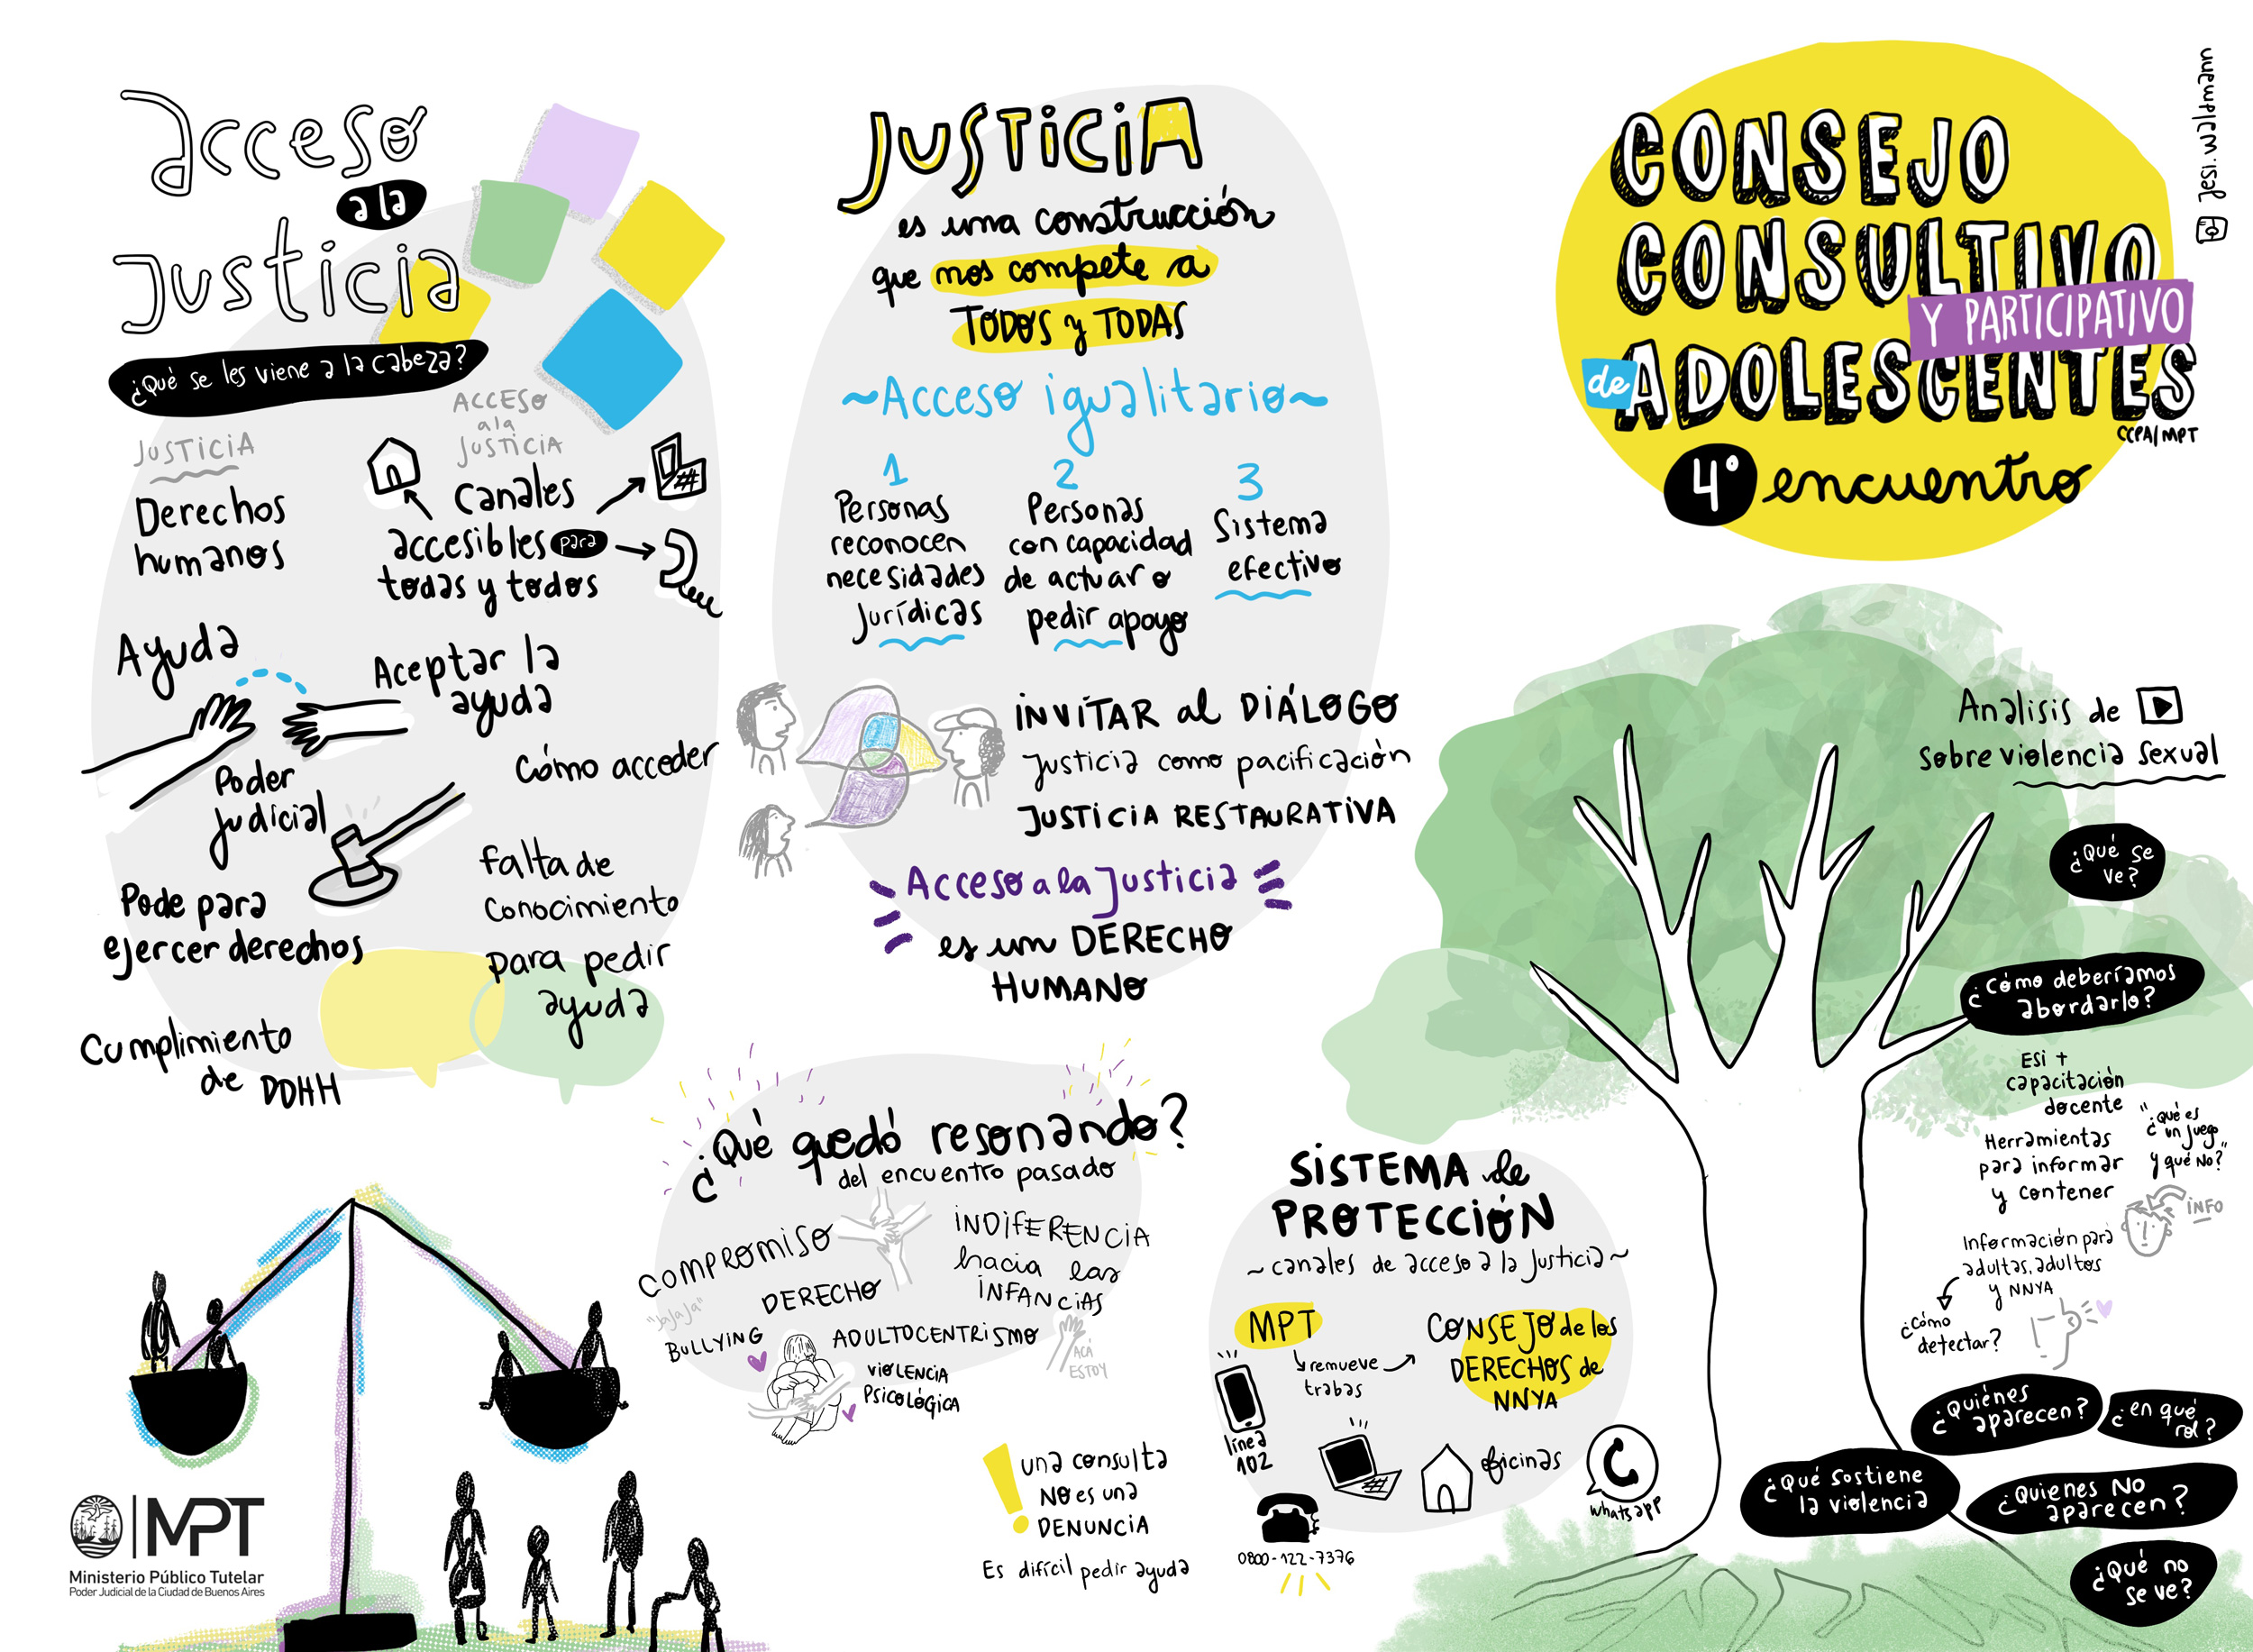 acceso
a la
Justicia
¿Qué se les viene a la cabeza?
JUSTICIA
Derechos
humanos
ACCESO
a la
JUSTICIA
canales
accesibles para
todas y todos
Ayuda
Aceptar la
ayuda
Poder
Judicial
Cómo acceder
Pode para
ejercer derechos
Falta de
conocimiento
para pedir
ayuda
Cumplimiento
de DDHH
MPT
Ministerio Público Tutelar
Poder Judicial de la Ciudad de Buenos Aires
JUSTICIA
es una construcción
que nos compete a
TODOS y TODAS
~Acceso igualitario~
1
Personas
reconocen
necesidades
Jurídicas
2
Personas
con capacidad
de actuar o
pedir apoyo
3
Sistema
efectivo
INVITAR al DIÁLOGO
Justicia como pacificación
JUSTICIA RESTAURATIVA
Acceso a la Justicia
es un DERECHO
HUMANO
¿Qué quedó resonando?
del encuentro pasado
COMPROMISO
INDIFERENCIA
hacia las
INFANCIAS
DERECHO
"JaJaJa"
BULLYING
ADULTOCENTRISMO
VIOLENCIA
PSICOLÓGICA
ACÁ
ESTOY
! una consulta
NO es una
DENUNCIA
Es difícil pedir ayuda
SISTEMA de
PROTECCIÓN
~canales de acceso a la Justicia~
MPT
remueve
trabas
CONSEJO de los
DERECHOS de
NNYA
línea
102
oficinas
whatsapp
0800-122-7376
CONSEJO
CONSULTIVO
Y PARTICIPATIVO
de ADOLESCENTES
CCPA/MPT
4° encuentro
Jesi.waldmann
Analisis de
sobre violencia sexual
¿Qué se
ve?
¿Cómo deberíamos
abordarlo?
ESI +
capacitación
docente
"¿Qué es
un juego
y qué NO?"
Herramientas
para informar
y contener
INFO
Información para
adultas, adultos
y NNYA
¿cómo
detectar?
¿Quiénes
aparecen?
¿en qué
rol?
¿Qué sostiene
la violencia
¿Quienes NO
aparecen?
¿Qué no
se ve?